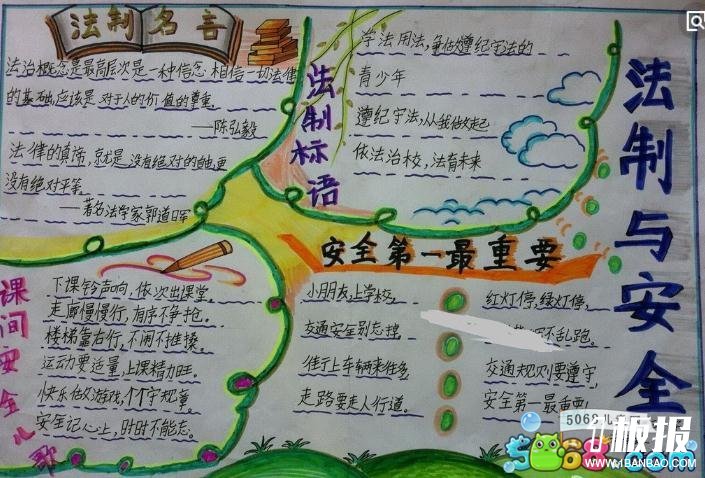 法制名言
法治概念是最高层次是一种信念 相信一切法律
的基础,应该是 对于人的价值的尊重.
——陈弘毅
法律的真谛,就是没有绝对的自由,更
没有绝对平等。
——著名法学家郭道晖
法制标语
学法用法,争做遵纪守法的
青少年
遵纪守法,从我做起
依法治校,法育未来
法制与安全
课间安全儿歌
下课铃声响,依次出课堂。
走廊慢慢行,有序不争抢。
楼梯靠右行,不闹不推搡。
运动要适量,上课精力旺。
快乐做游戏,个个守规章。
安全记心上,时时不能忘。
安全第一最重要
小朋友上学校。
交通安全别忘掉
上车辆来往多
走路要走人行道。
红灯停,绿灯行,
不乱跑。
交通规则要遵守,
安全第一最重要!
5068儿
板报
5068.com
WWW.1BANBAO.COM